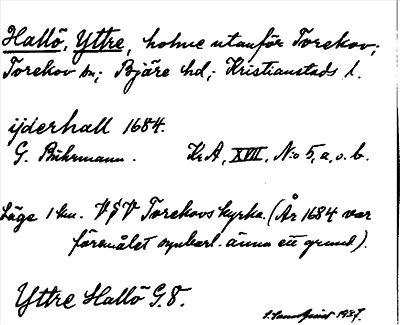 Hallö, Yttre, holme utanför Torekov;
Torekov sn; Bjäre hd; Kristianstads l.
ijderhall 1684.
G. Buhrmann. KrA, XVIII, N:o 5, a, o. b.
Läge 1 km. VSV Torekovs kyrka. (År 1684 var
föremålet synbarl. ännu ett grund).
Yttre Hallö G.8.
1927.